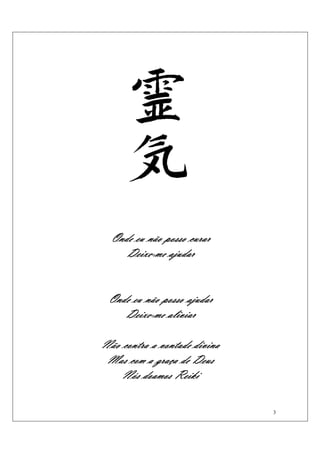 霊
気
Onde eu não posso curar
Deixe-me ajudar
Onde eu não posso ajudar
Deixe-me aliviar
Não contra a vontade divina
Mas com a graça de Deus
Nós doamos Reiki
3